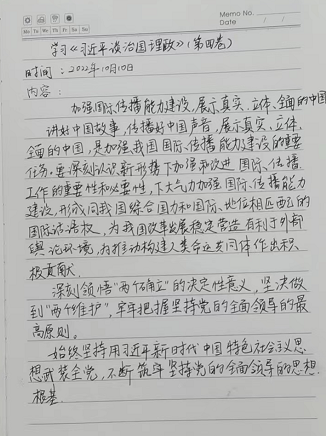 Memo No.
Date / /
Mo Tu We Th Fr Sa Su
学习《习近平谈治国理政》(第四卷)
时间：2022年10月10日
内容：
加强国际传播能力建设，展示真实、立体、全面的中国
讲好中国故事，传播好中国声音，展示真实、立体、
全面的中国，是加强我国国际传播能力建设的重要
任务。要深刻认识新形势下加强和改进国际传播
工作的重要性和必要性，下大气力加强国际传播能力
建设，形成同我国综合国力和国际地位相匹配的
国际话语权，为我国改革发展稳定营造有利于外部
舆论环境，为推动构建人类命运共同体作出积
极贡献。
深刻领悟"两个确立"的决定性意义，坚决做
到"两个维护"，牢牢把握坚持党的全面领导的最
高原则。
始终坚持用习近平新时代中国特色社会主义思
想武装全党，不断筑牢坚持党的全面领导的思想
根基